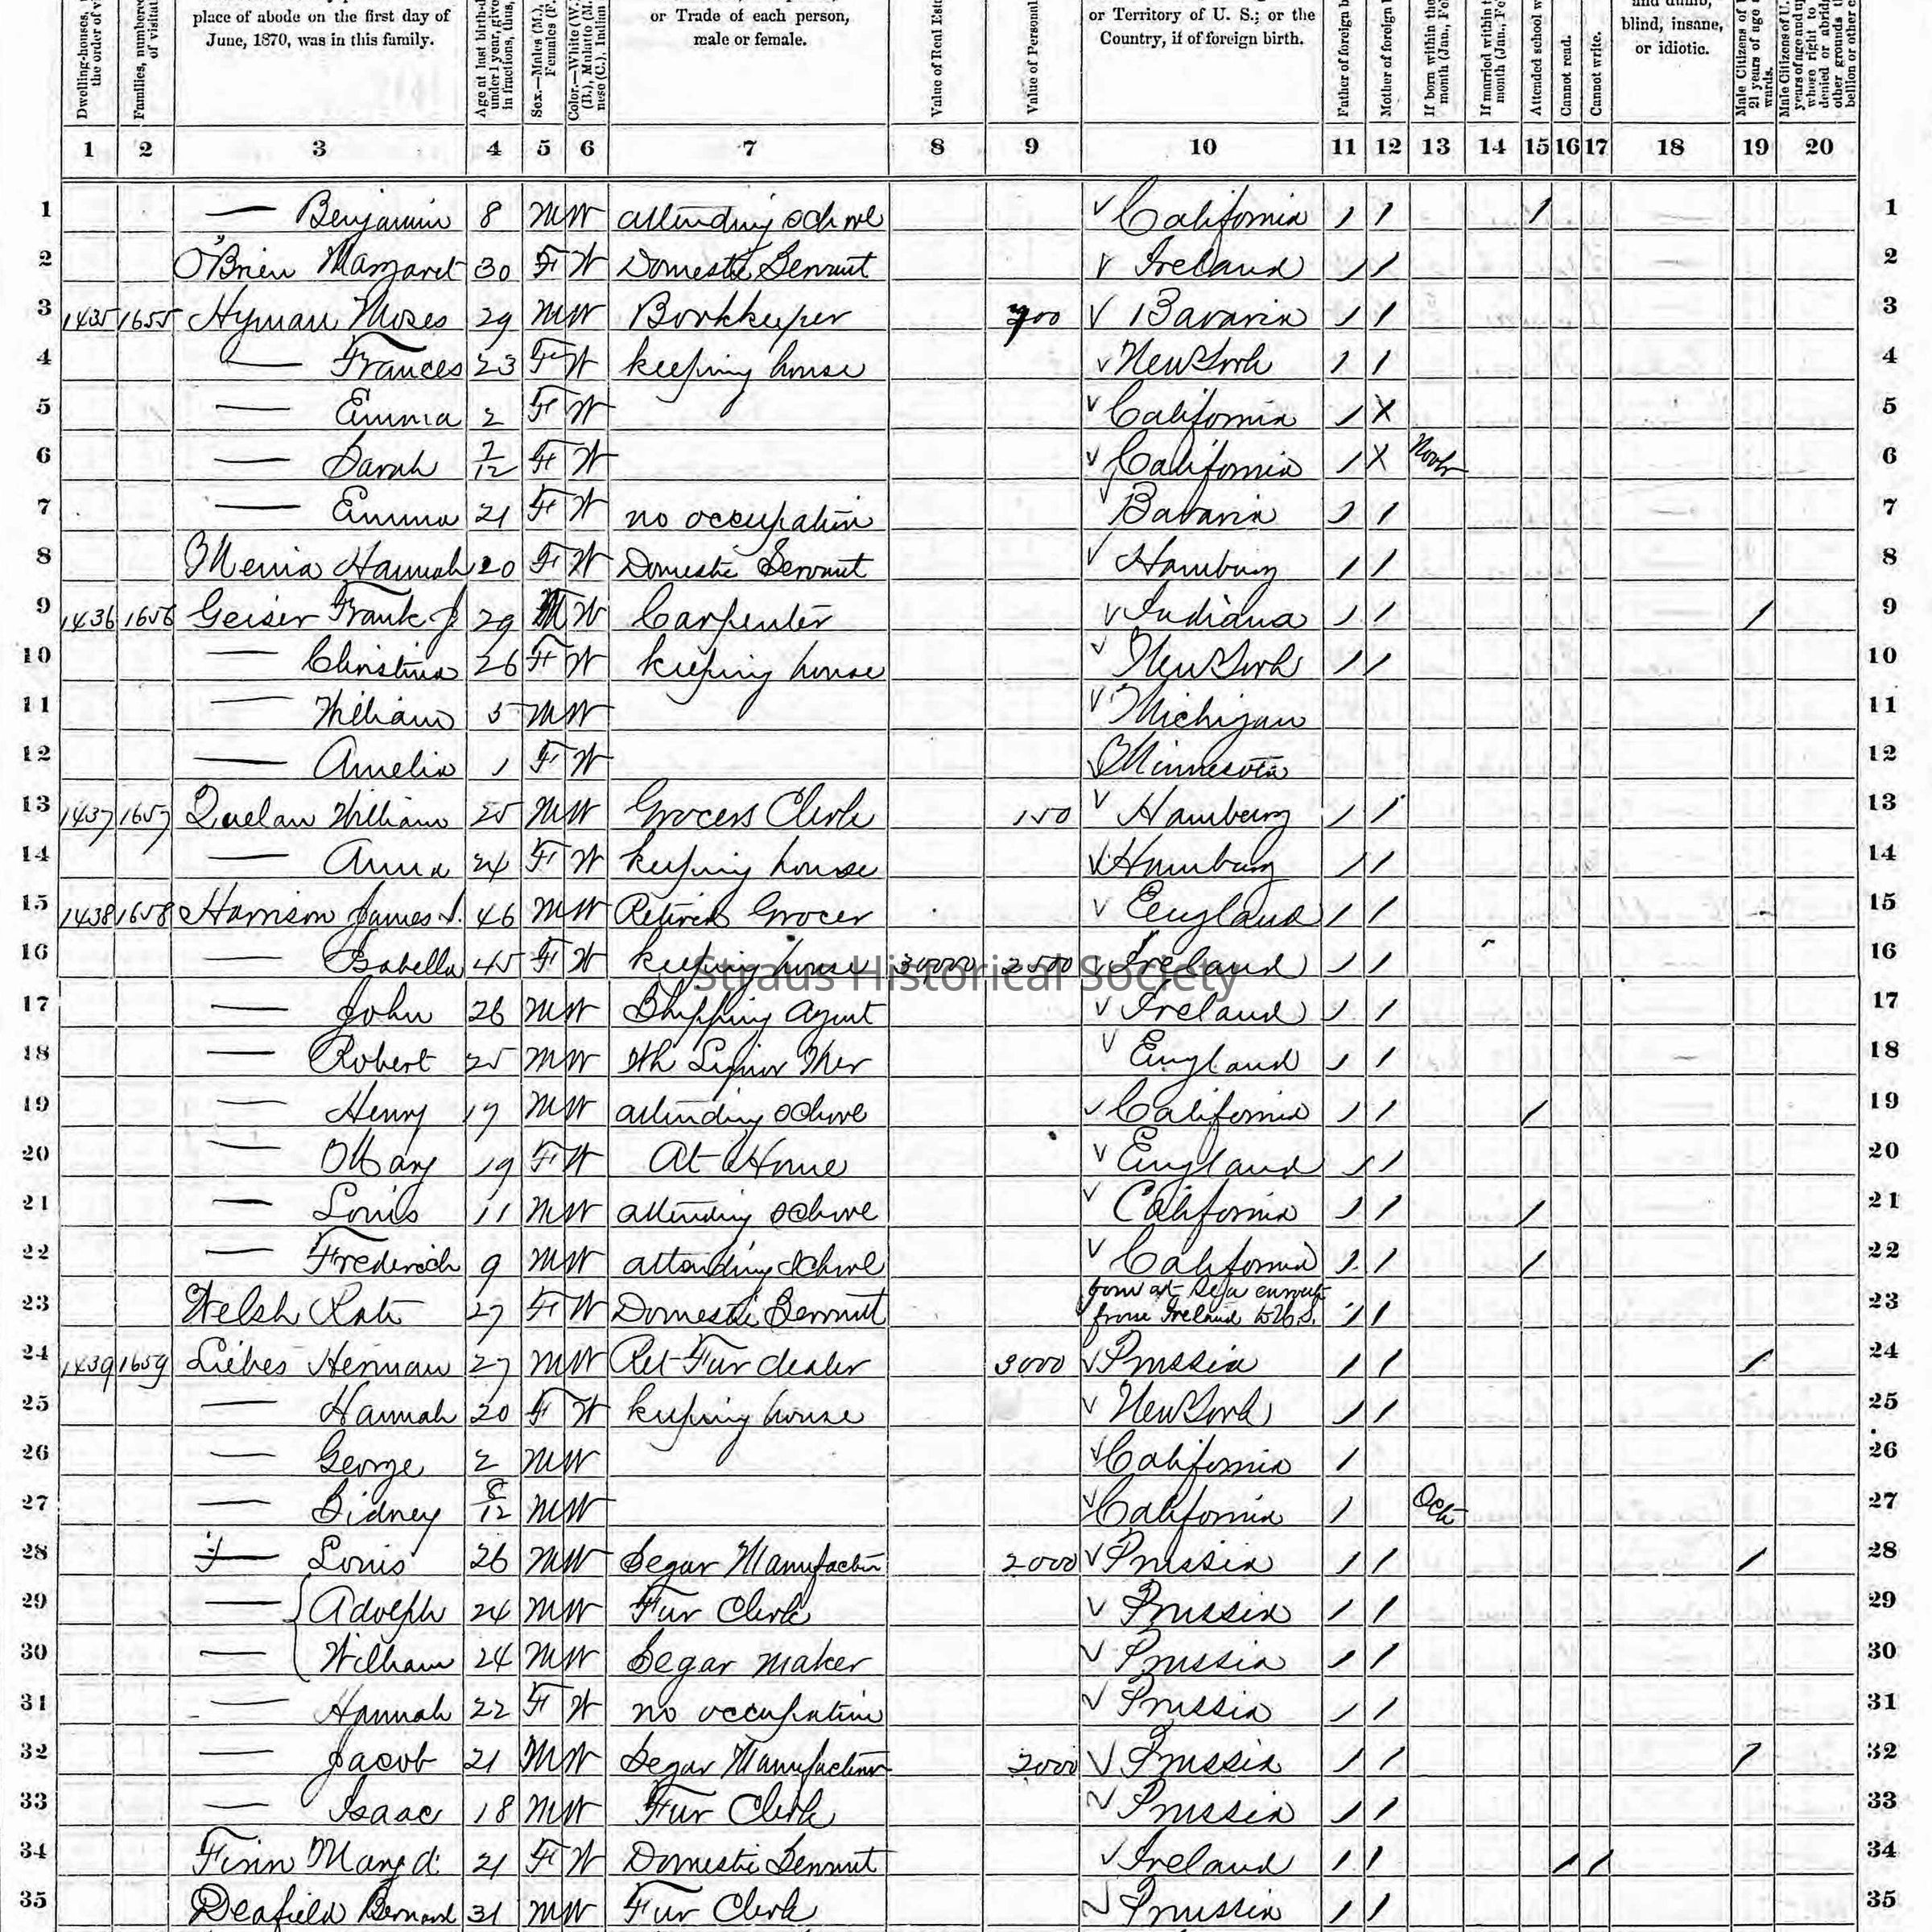 Dwelling-houses, the order of vi
Families, numbered of visitati
place of abode on the first day of
June, 1870, was in this family.
Age at last birth-d under 1 year, give in fractions, thus,
Sex.—Males (M.), Females (F.
Color.—White (W. (B.), Mulatto (M. nese (C.), Indian
or Trade of each person,
male or female.
Value of Real Est
Value of Personal
or Territory of U. S.; or the
Country, if of foreign birth.
Father of foreign b
Mother of foreign b
If born within the month (Jan., Fe
If married within t month (Jan., Fe
Attended school w
Cannot read.
Cannot write.
and dumb,
blind, insane,
or idiotic.
Male Citizens of U 21 years of age a wards.
Male Citizens of U. years of age and up whose right to denied or abrid other grounds th bellion or other c
1 2 3 4 5 6 7 8 9 10 11 12 13 14 15 16 17 18 19 20
1 — Benjamin 8 M W attending school California / / / 1
2 O'Brien Margaret 30 F W Domestic Servant Ireland / / 2
3 1435 1655 Hyman Moses 29 M W Bookkeeper Bavaria / / 3
4 — Frances 23 F W keeping house New York / / 4
5 — Emma 2 F W California / X 5
6 — Sarah 7/12 F W California / X Novbr 6
7 — Emma 21 F W no occupation Bavaria / / 7
8 Hannah 20 F W Domestic Servant Hamburg / / 8
9 1436 1656 Geiser Frank J 29 M W Carpenter Indiana / / / 9
10 — Christina 26 F W keeping house New York / / 10
11 — William 5 M W Michigan 11
12 — Amelia 1 F W Minnesota 12
13 1437 1657 William 25 M W Grocers Clerk 150 Hamburg / / 13
14 — Anna 24 F W keeping house Hamburg / / 14
15 1438 1658 Harrison James 46 M W Retired Grocer England / / 15
16 — Isabella 45 F W keeping house 30000 2500 Ireland / / 16
Straus Historical Society
17 — John 26 M W Shipping Agent Ireland / / 17
18 — Robert 25 M W Wh Liquor Mer England / / 18
19 — Henry 17 M W attending school California / / / 19
20 — Mary 19 F W At Home England / / 20
21 — Louis 11 M W attending school California / / / 21
22 — Frederick 9 M W attending school California / / / 22
23 Welsh Kate 27 F W Domestic Servant born at Sea enroute from Ireland to U.S. / / 23
24 1439 1659 Liebes Herman 27 M W Ret Fur dealer 3000 Prussia / / / 24
25 — Hannah 20 F W keeping house New York / / 25
26 — George 2 M W California / 26
27 — Sidney 8/12 M W California / Oct 27
28 — Louis 26 M W Segar Manufactur 2000 Prussia / / / 28
29 — Adolph 24 M W Fur Clerk Prussia / / 29
30 — William 24 M W Segar maker Prussia / / 30
31 — Hannah 22 F W no occupation Prussia / / 31
32 — Jacob 21 M W Segar Manufacturer 2000 Prussia / / / 32
33 — Isaac 18 M W Fur Clerk Prussia / / 33
34 Finn 21 F W Domestic Servant Ireland / / / / 34
35 Deafield Bernard 31 M W Fur Clerk Prussia / / 35